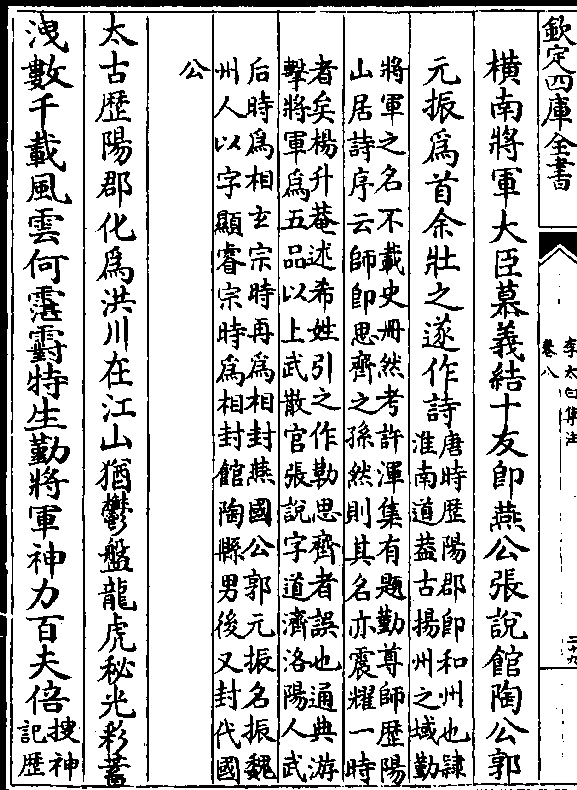 欽定四庫全書
李太白集注
卷八
二十九
橫南將軍大臣慕義結十友即燕公張說館陶公郭
元振爲首余壯之遂作詩
唐時歷陽郡即和州也隷
淮南道蓋古揚州之域勤
將軍之名不載史冊然考許渾集有題勤尊師歷陽
山居詩序云師即思齊之孫然則其名亦震耀一時
者矣楊升菴述希姓引之作勒思齊者誤也通典游
擊將軍爲五品以上武散官張說字道濟洛陽人武
后時爲相玄宗時再爲相封燕國公郭元振名振魏
州人以字顯睿宗時爲相封館陶縣男後又封代國
公
太古歷陽郡化爲洪川在江山猶鬱盤龍虎秘光彩蓄
洩數千載風雲何霮䨴特生勤將軍神力百夫倍
搜神
記歷